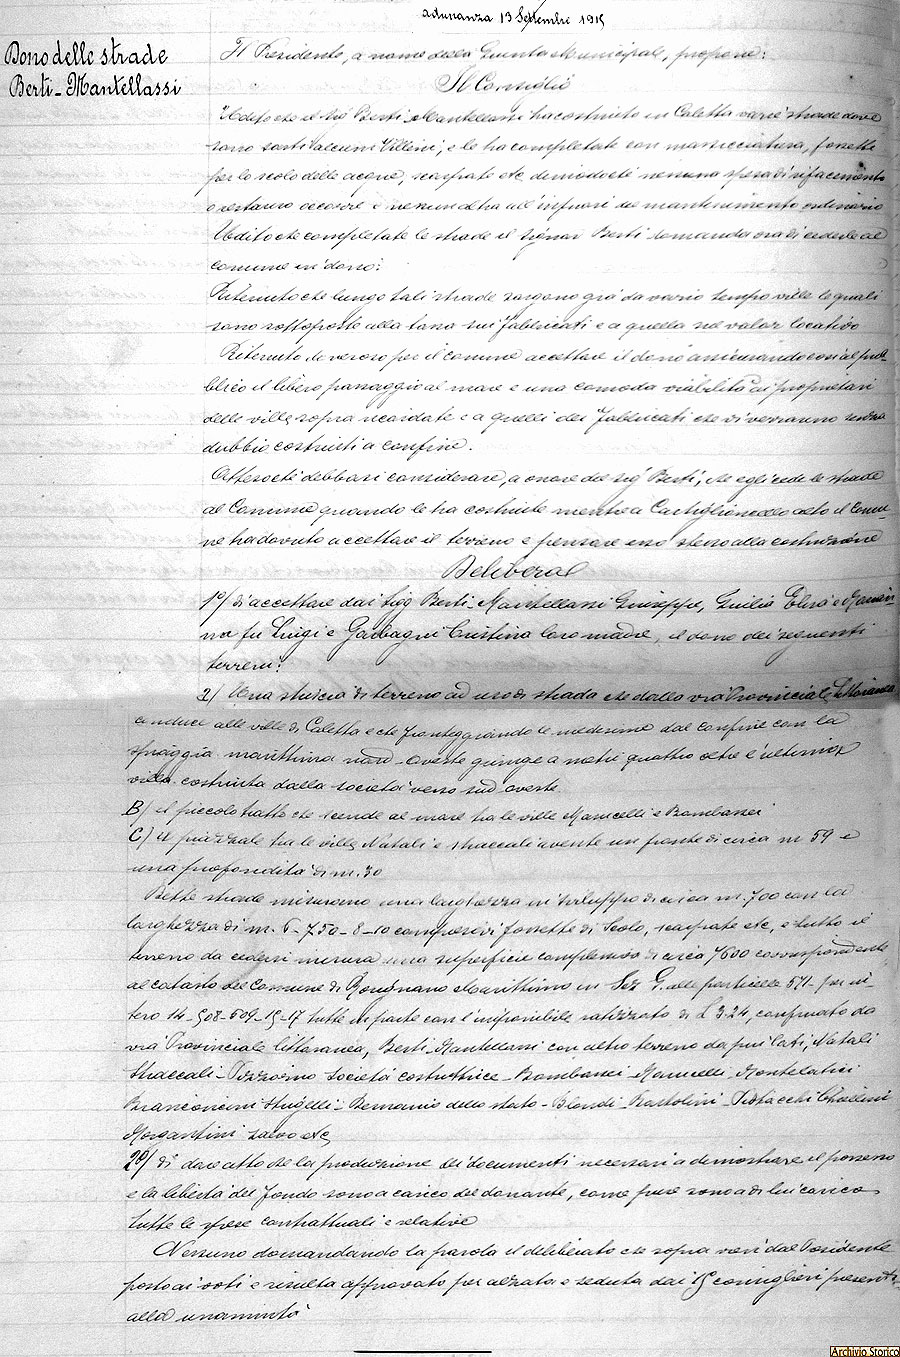 adunanza 13 Settembre 1915
Dono delle strade
Berti - Mantellassi
Il Presidente, a nome della Giunta Municipale, propone:
Il Consiglio
Udito che il Sig. Berti Mantellassi ha costruito in Caletta varie strade dove
sono sorti alcuni Villini, e le ha completate con massicciatura, fossette
per lo scolo delle acque, scarpate etc di modo che nessuna spesa di rifacimento
o restauro occorre e nessun'altra all'infuori del mantenimento ordinario
Udito che completate le strade il Signor Berti domanda ora di cederle al
comune in dono:
Ritenuto che lungo tali strade sorgono già da vario tempo ville le quali
sono sottoposte alla tassa sui fabbricati e a quella sul valor locativo
Ritenuto doveroso per il comune accettare il dono assicurando così al pub-
blico il libero passaggio al mare e una comoda viabilità ai proprietari
delle ville sopra ricordate e a quelli dei fabbricati che vi verranno senza
dubbio costruiti a confine.
Attesoché debbasi considerare, a onore del sig Berti, che egli cede le strade
al Comune quando le ha costruite mentre a Castiglioncello alto il Comu-
ne ha dovuto accettare il terreno e pensare esso stesso alla costruzione
Delibera
1°/ di accettare dai Sigg Berti-Mantellassi Giuseppe, Giulia Elisa e
na fu Luigi e Garbagni Cristina loro madre, il dono dei seguenti
terreni:
a) Una striscia di terreno ad uso di strada che dalla via Provinciale Littoranea
conduce alle ville di Caletta e che fronteggiando le medesime dal confine con la
spiaggia marittima nord-ovest giunge a metri quattro oltre l'ultima
villa costruita dalla società verso sud ovest.
B) il piccolo tratto che scende al mare fra le ville Marucelli e Bombassei
C) il piazzale fra le ville Natali e Straccali avente un fronte di circa m 59 e
una profondità di m. 30
Dette strade misurano una larghezza in sviluppo di circa m. 700 con la
larghezza di m. 6-7.50-8-10 compresovi fossette di Scolo, scarpate etc, e tutto il
terreno da cedersi misura una superficie complessiva di circa 7600 corrispondente
al catasto del Comune di Rosignano Marittimo in Sez G. alle particelle 571- per in-
tero 14-508-509-15-17 tutte in parte con l'imponibile ratizzato di L 3.24, confinato da
via Provinciale littoranea, Berti-Mantellassi con altro terreno da più lati, Natali
Straccali - Pozzolini Società costruttrice - Bombassei - Marucelli - Montelatici
Branconcini Hugelli - Demanio dello Stato - Blondi - Bartolini - Pistacchi Challini
Morgantini salvo etc,
2°/ di dare atto che la produzione dei documenti necessari a dimostrare il possesso
e la libertà del fondo sono a carico del donante, come pure sono a di lui carico
tutte le spese contrattuali e relative
Nessuno domandando la parola il deliberato che sopra vien dal Presidente
posto ai voti e risulta approvato per alzata e seduta dai 15 consiglieri presenti
alla unanimità
Archivio Storico